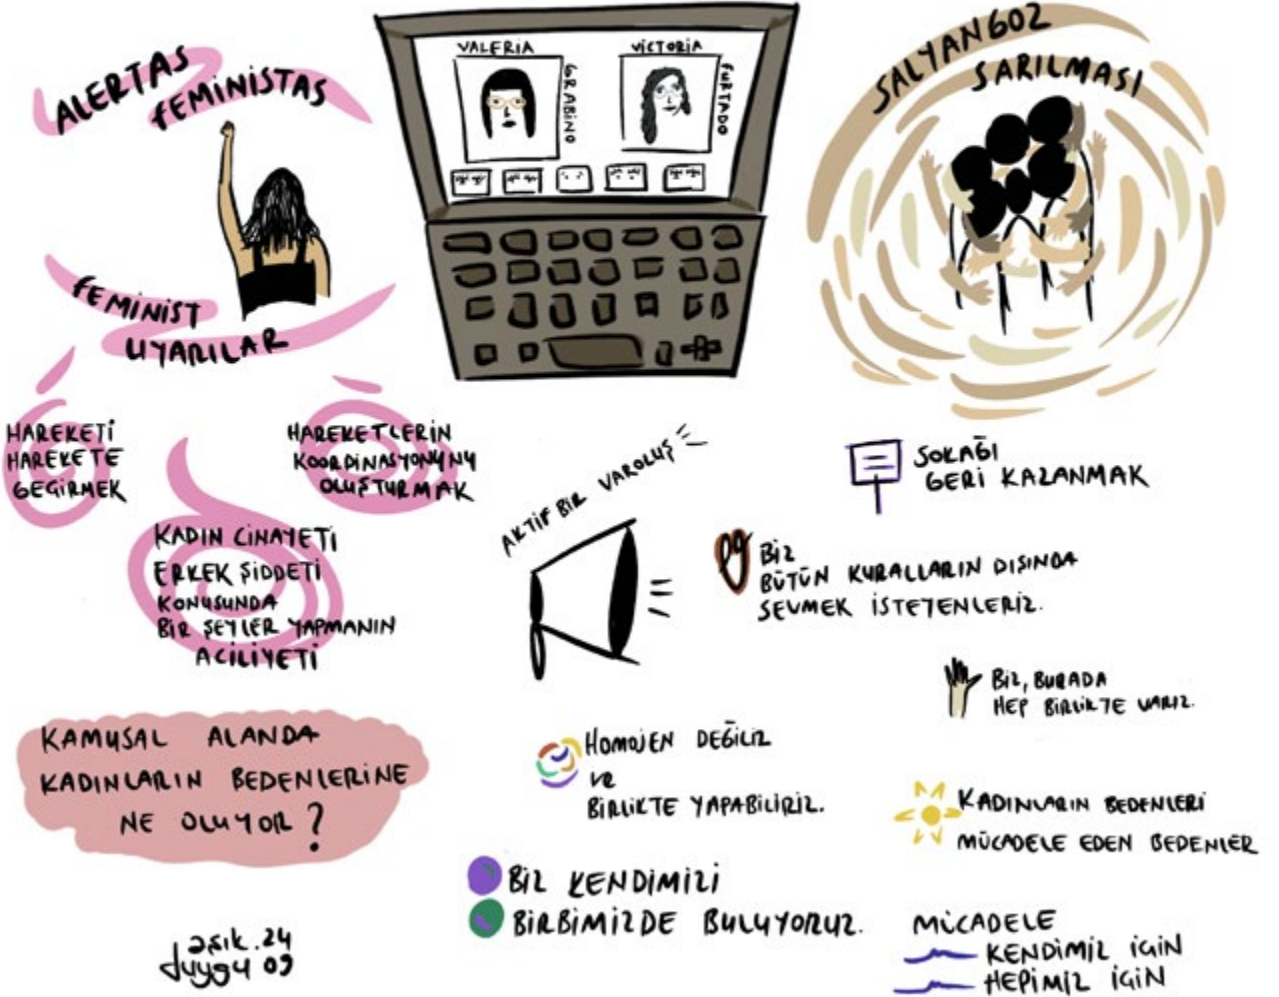 ALERTAS
FEMINISTAS
FEMINIST
UYARILAR
VALERIA
GRABINO
VİCTORİA
FURTADO
SALYANGOZ
SARILMASI
HAREKETİ
HAREKETE
GEGİRMEK
HAREKETLERİN
KOORDİNASYONUNU
OLUŞTURMAK
KADIN CİNAYETİ
ERKEK ŞİDDETİ
KONUSUNDA
BİR ŞEYLER YAPMANIN
ACİLİYETİ
KAMUSAL ALANDA
KADINLARIN BEDENLERİNE
NE OLUYOR?
aşık.24
duygu 09
AKTİF BİR VAROLUŞ
SOKAĞI
GERİ KAZANMAK
BİZ
BÜTÜN KURALLARIN DIŞINDA
SEVMEK İSTEYENLERİZ.
BİZ, BURADA
HEP BİRLİKTE VARIZ.
HOMOJEN DEĞİLİZ
VE
BİRLİKTE YAPABİLİRİZ.
KADINLARIN BEDENLERİ
MÜCADELE EDEN BEDENLER
BİZ KENDİMİZİ
BİRBİMİZDE BULUYORUZ.
MÜCADELE
KENDİMİZ İÇİN
HEPİMİZ İÇİN